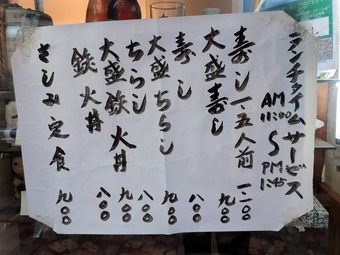 ランチタイムサービス
AM 11:00 〜 PM 1:45
寿し一、五人前 一二〇〇
大盛寿し 九〇〇
寿し 八〇〇
大盛ちらし 九〇〇
ちらし 八〇〇
大盛鉄火丼 九〇〇
鉄火丼 八〇〇
さしみ定食 九〇〇